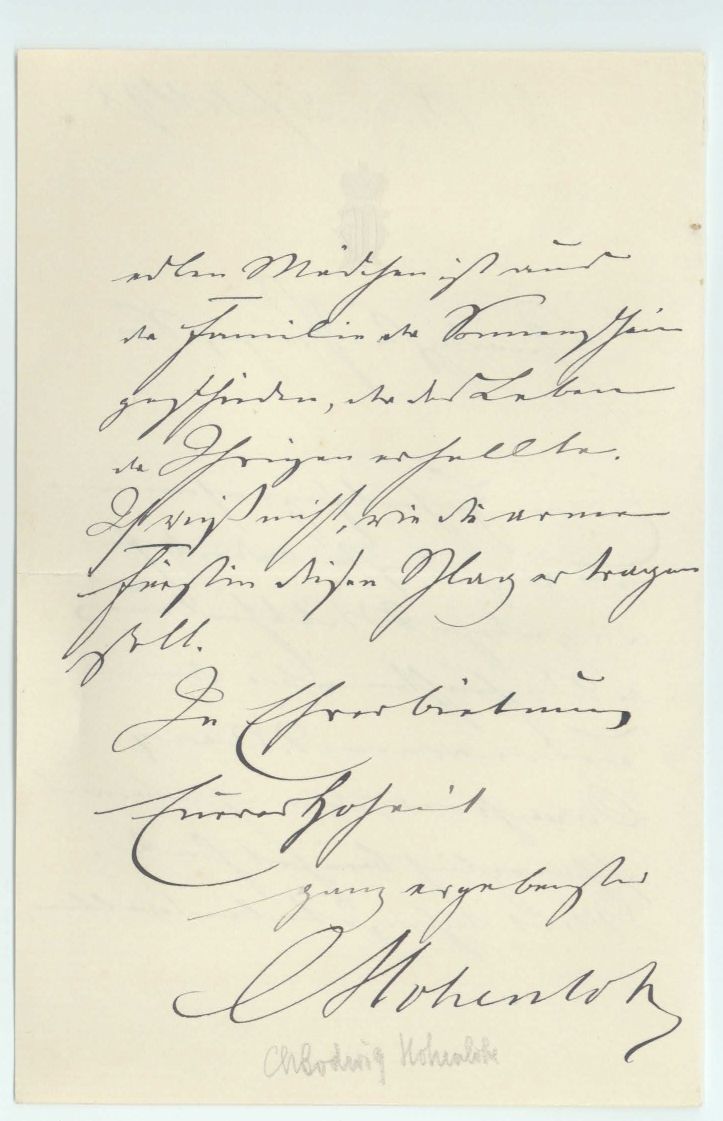 edlen Mädchen ist aus
der Familie der Sonnenschein
geschieden, der das Leben
der Ihrigen erhellte.
Ich weiß nicht, wie die arme
Fürstin diesen Schlag ertragen
soll.
In Ehrerbietung
Eurer Hoheit
ganz ergebenster
CHohenlohe
Chlodwig Hohenlohe